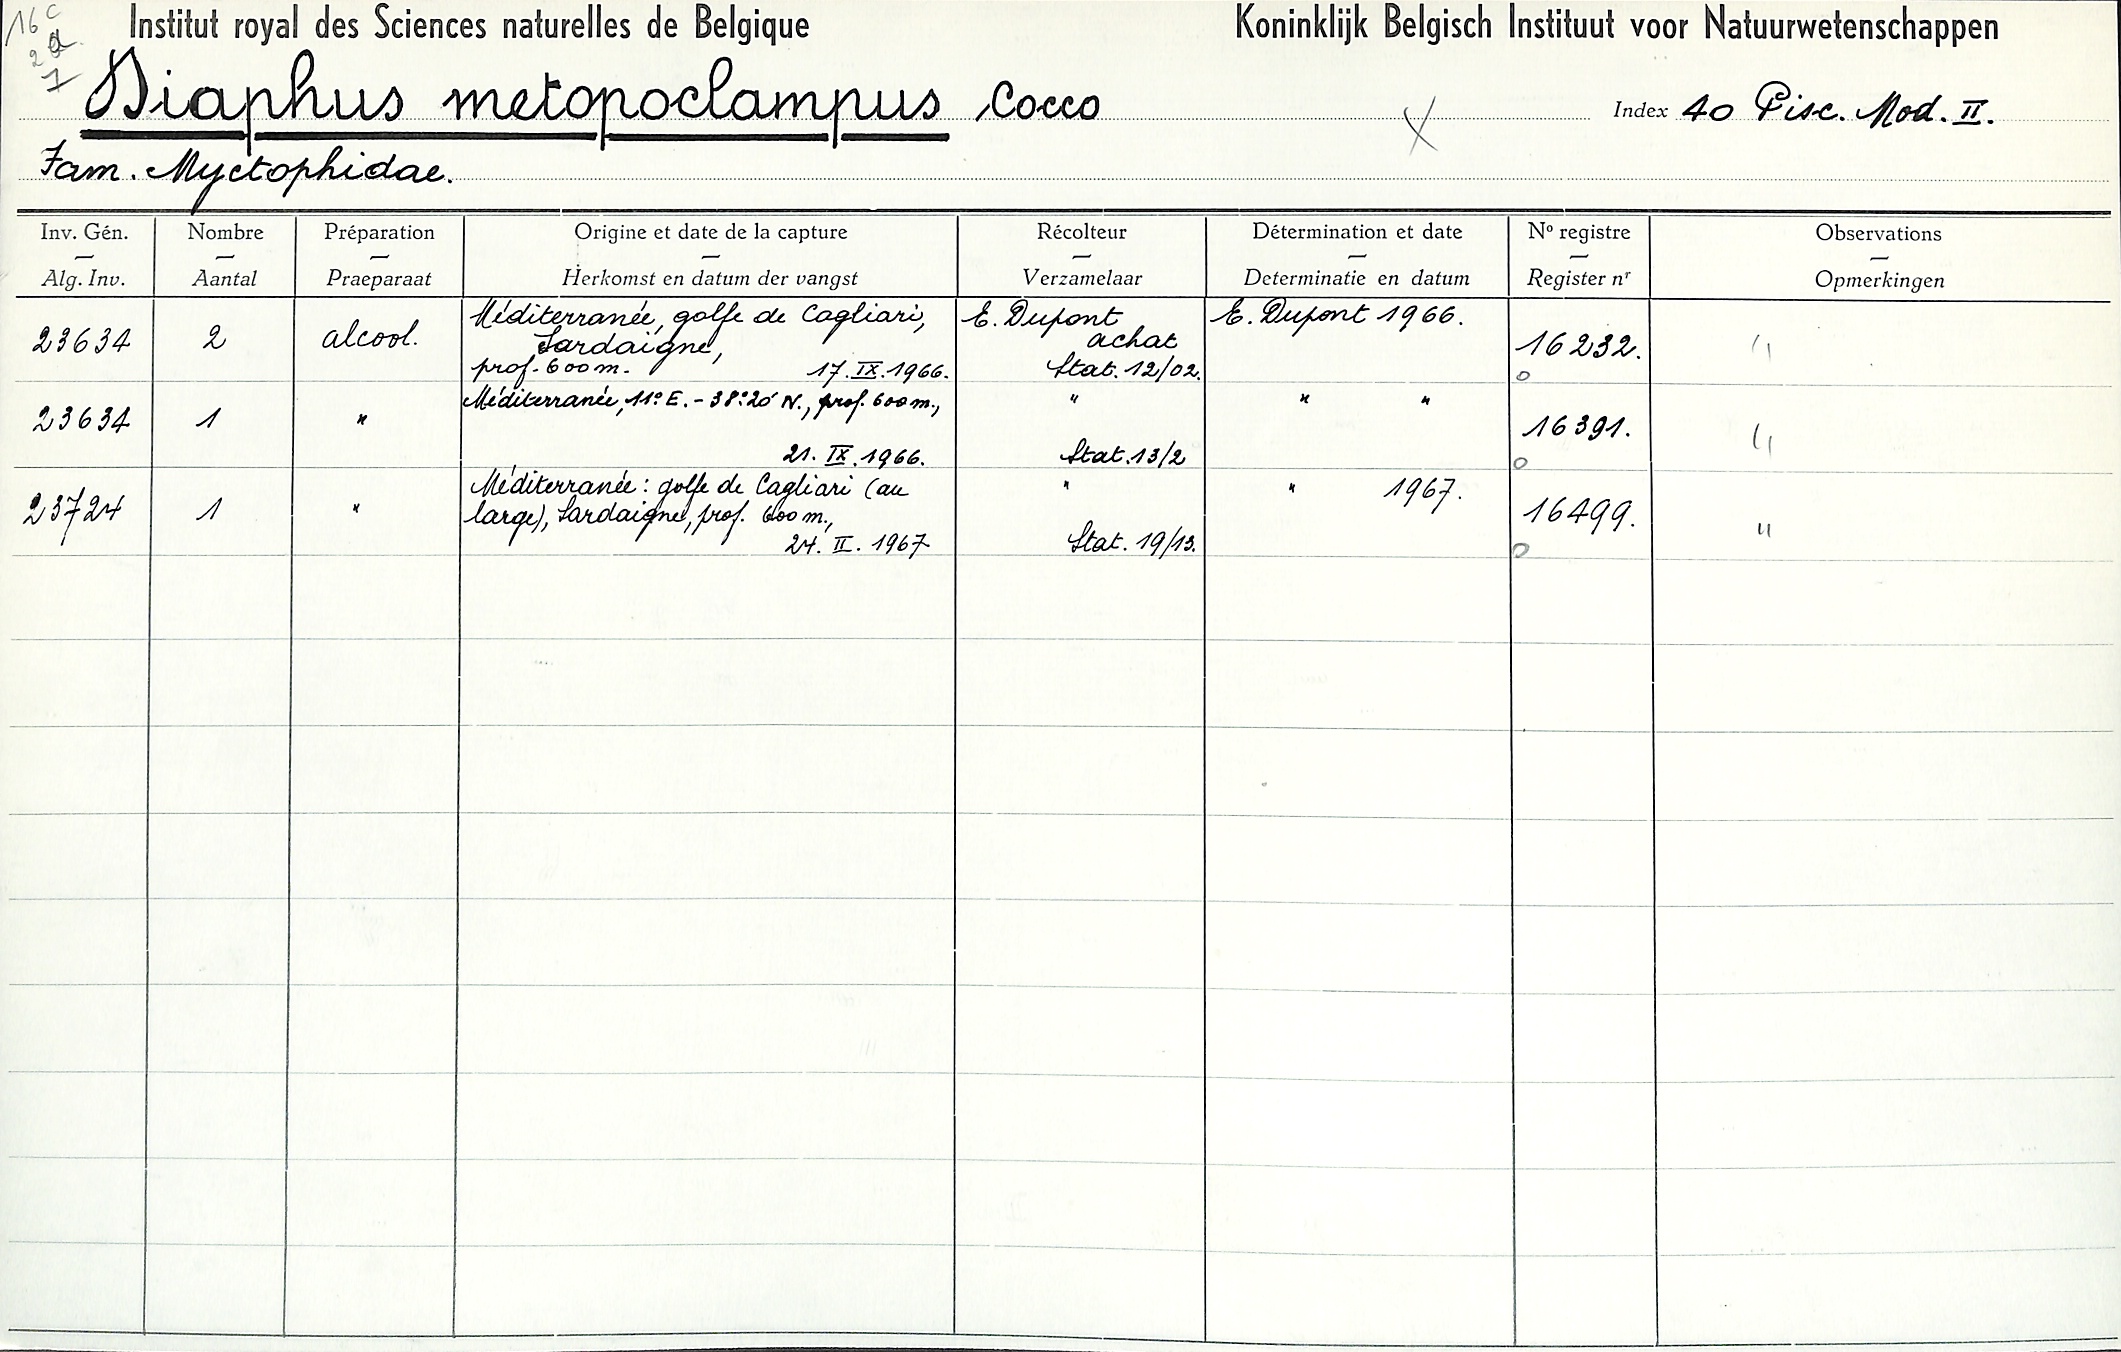 16 c
2 a
7
Institut royal des Sciences naturelles de Belgique Koninklijk Belgisch Instituut voor Natuurwetenschappen
Diaphus metopoclampus Cocco X Index 40 Pisc. Mod. II.
Fam. Myctophidae.
Inv. Gén. Nombre Préparation Origine et date de la capture Récolteur Détermination et date No registre Observations
Alg. Inv. Aantal Praeparaat Herkomst en datum der vangst Verzamelaar Determinatie en datum Register nr Opmerkingen
Méditerranée, golfe de Cagliari, E. Dupont E. Dupont 1966.
23634 2 alcool. Sardaigne, achat 16232. "
prof. 600 m. 17.IX.1966. Stat. 12/02.
Méditerranée, 11° E. - 38°20' N., prof. 600 m., " " "
23634 1 " 16391. "
21. IX. 1966. Stat. 13/2
Méditerranée : golfe de Cagliari (au " " 1967.
23724 1 " large), Sardaigne, prof. 600 m., 16499. "
24. II. 1967 Stat. 19/13.